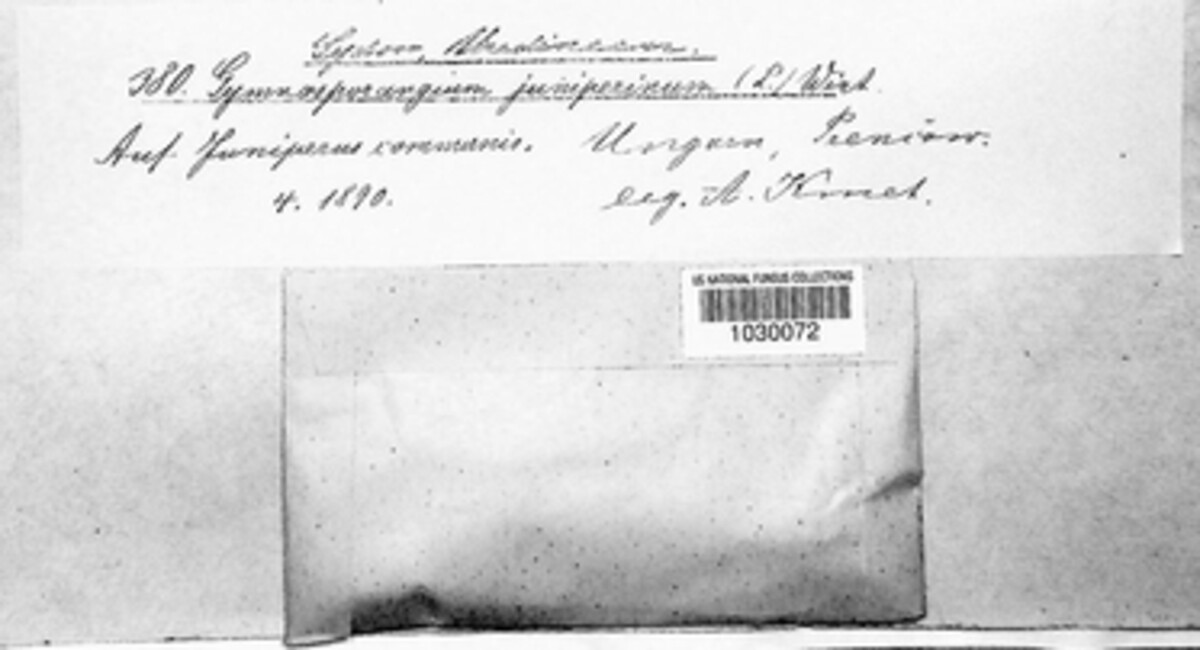 Sydow, Uredineen.
380. Gymnosporangium juniperinum (L.) Wint.
Auf Juniperus communis. Ungarn,
4. 1890. leg. A. Kmet.
US NATIONAL FUNGUS COLLECTIONS
1030072